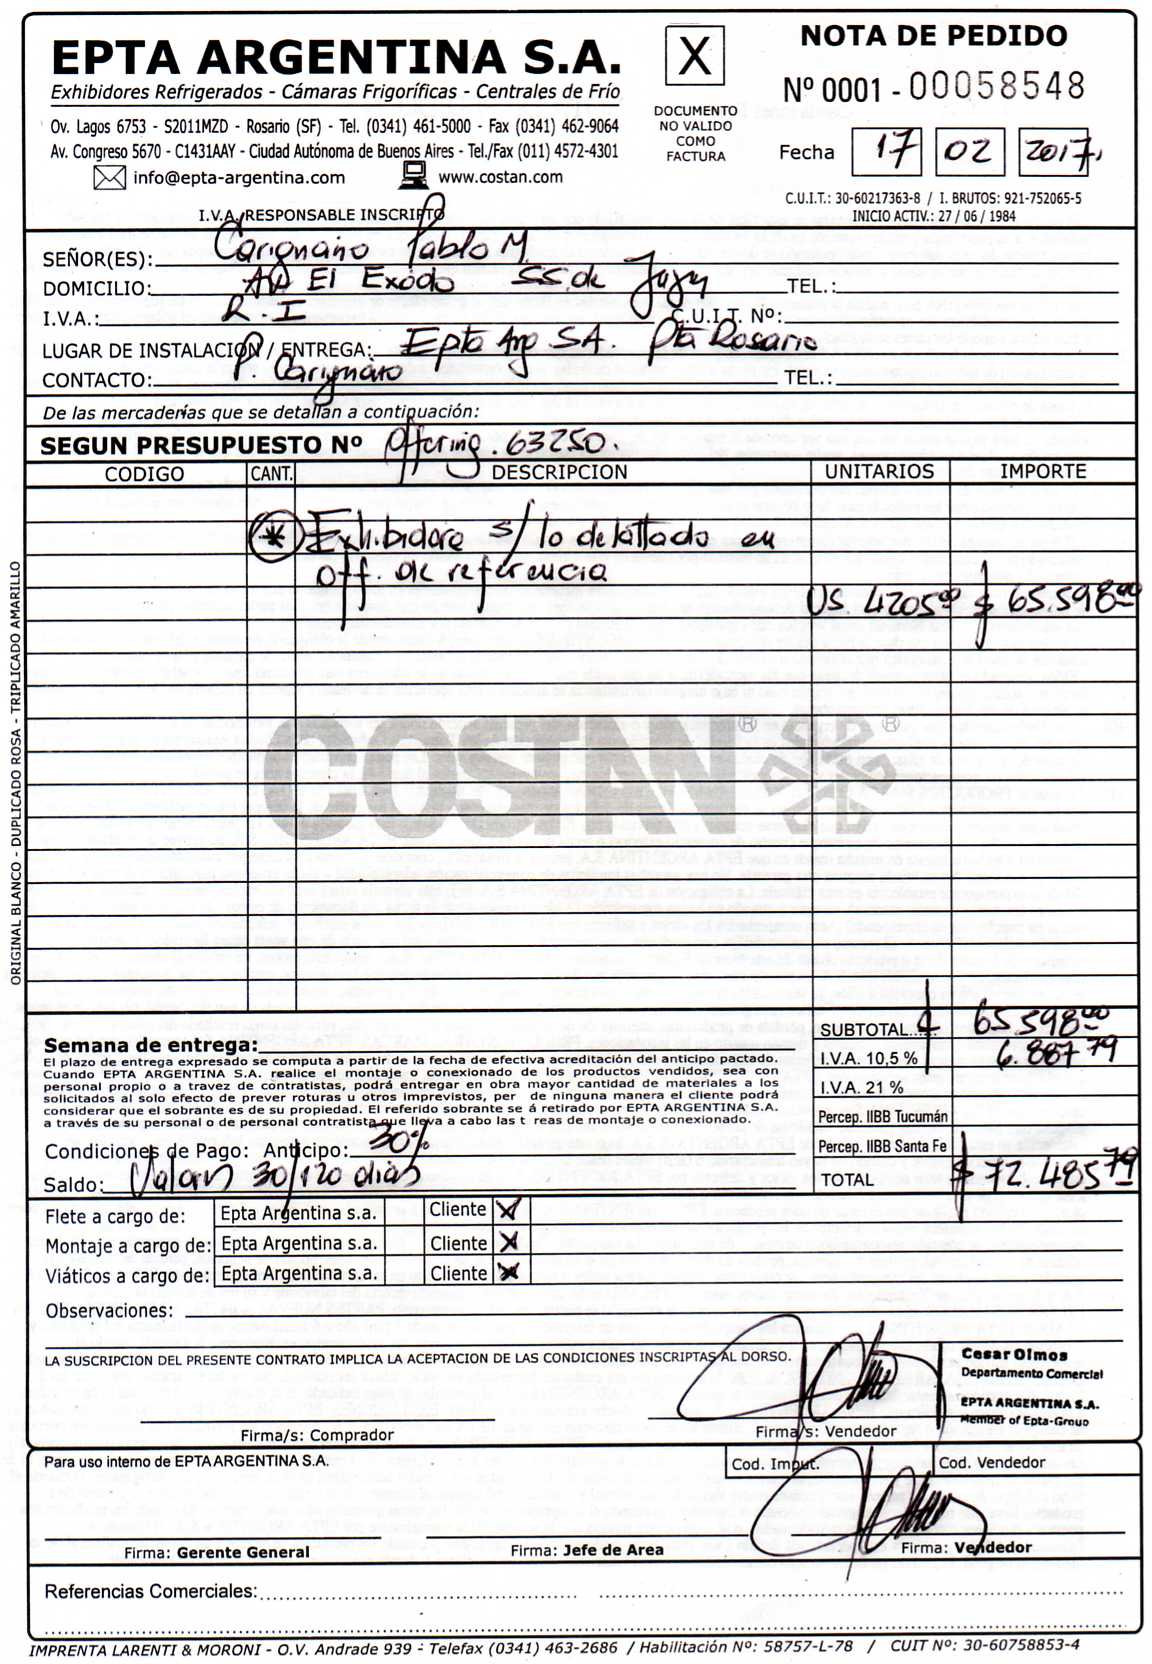 EPTA ARGENTINA S.A.
Exhibidores Refrigerados - Cámaras Frigoríficas - Centrales de Frío
Ov. Lagos 6753 - S2011MZD - Rosario (SF) - Tel. (0341) 461-5000 - Fax (0341) 462-9064
Av. Congreso 5670 - C1431AAY - Ciudad Autónoma de Buenos Aires - Tel./Fax (011) 4572-4301
info@epta-argentina.com www.costan.com
I.V.A. RESPONSABLE INSCRIPTO
X
DOCUMENTO
NO VALIDO
COMO
FACTURA
NOTA DE PEDIDO
Nº 0001 - 00058548
Fecha 17 02 2017
C.U.I.T.: 30-60217363-8 / I. BRUTOS: 921-752065-5
INICIO ACTIV.: 27 / 06 / 1984
SEÑOR(ES): Carignano Pablo M.
DOMICILIO: AV El Exodo SS. de Jujuy TEL.:
I.V.A.: R.I C.U.I.T. Nº:
LUGAR DE INSTALACION / ENTREGA: Epta Arg SA. Pta Rosario
CONTACTO: P. Carignano TEL.:
De las mercaderías que se detallan a continuación:
SEGUN PRESUPUESTO Nº Offering. 63250.
CODIGO CANT. DESCRIPCION UNITARIOS IMPORTE
* Exhibidore s/ lo detallado en
off. de referencia
US. 4205.00 $ 65.598.00
COSTAN
ORIGINAL BLANCO - DUPLICADO ROSA - TRIPLICADO AMARILLO
Semana de entrega:
El plazo de entrega expresado se computa a partir de la fecha de efectiva acreditación del anticipo pactado.
Cuando EPTA ARGENTINA S.A. realice el montaje o conexionado de los productos vendidos, sea con
personal propio o a travez de contratistas, podrá entregar en obra mayor cantidad de materiales a los
solicitados al solo efecto de prever roturas u otros imprevistos, per de ninguna manera el cliente podrá
considerar que el sobrante es de su propiedad. El referido sobrante se á retirado por EPTA ARGENTINA S.A.
a través de su personal o de personal contratista que lleva a cabo las t reas de montaje o conexionado.
Condiciones de Pago: Anticipo: 30%
Saldo: Valores 30/120 dias
SUBTOTAL..... $ 65.598.00
I.V.A. 10,5 % 6.887.79
I.V.A. 21 %
Percep. IIBB Tucumán
Percep. IIBB Santa Fe
TOTAL $ 72.485.79
Flete a cargo de: Epta Argentina s.a. Cliente X
Montaje a cargo de: Epta Argentina s.a. Cliente X
Viáticos a cargo de: Epta Argentina s.a. Cliente X
Observaciones:
LA SUSCRIPCION DEL PRESENTE CONTRATO IMPLICA LA ACEPTACION DE LAS CONDICIONES INSCRIPTAS AL DORSO.
Cesar Olmos
Departamento Comercial
EPTA ARGENTINA S.A.
Member of Epta-Group
Firma/s: Comprador Firma/s: Vendedor
Para uso interno de EPTA ARGENTINA S.A. Cod. Imput. Cod. Vendedor
Firma: Gerente General Firma: Jefe de Area Firma: Vendedor
Referencias Comerciales:
IMPRENTA LARENTI & MORONI - O.V. Andrade 939 - Telefax (0341) 463-2686 / Habilitación Nº: 58757-L-78 / CUIT Nº: 30-60758853-4